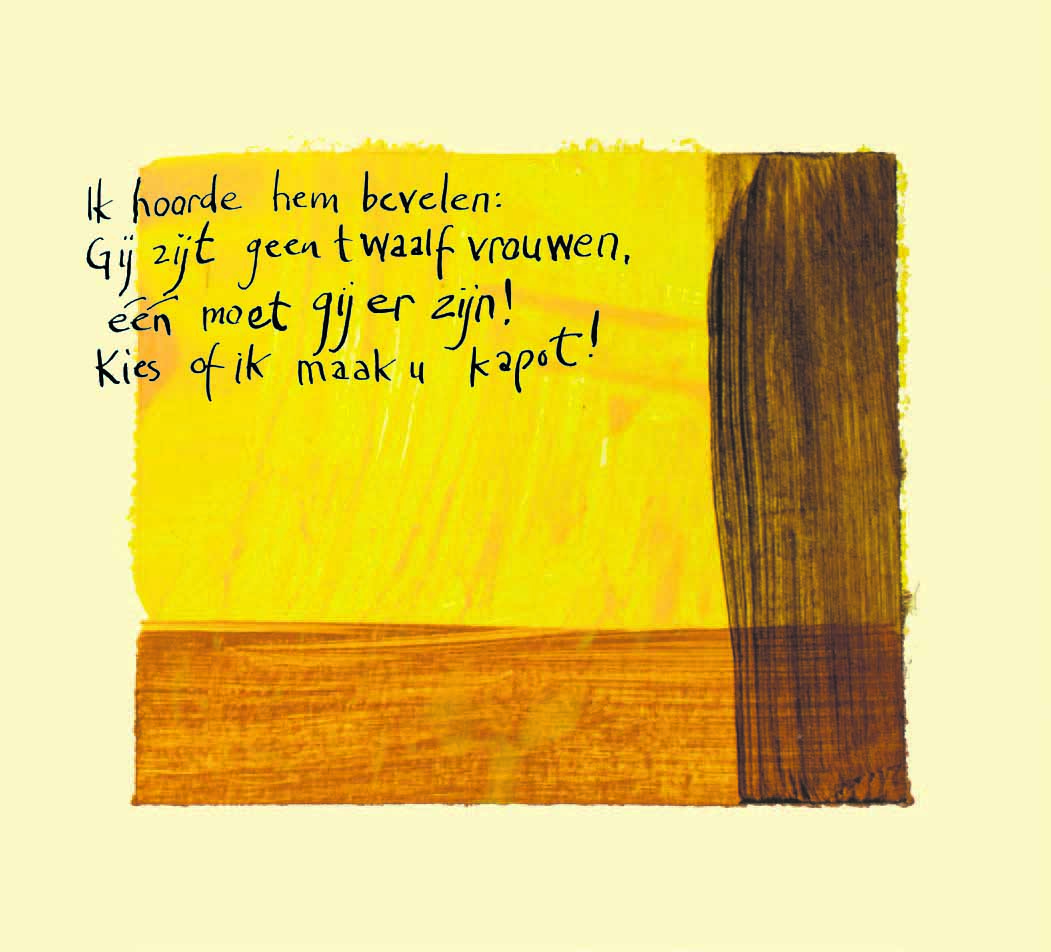 Ik hoorde hem bevelen:
Gij zijt geen twaalf vrouwen,
één moet gij er zijn!
Kies of ik maak u kapot!